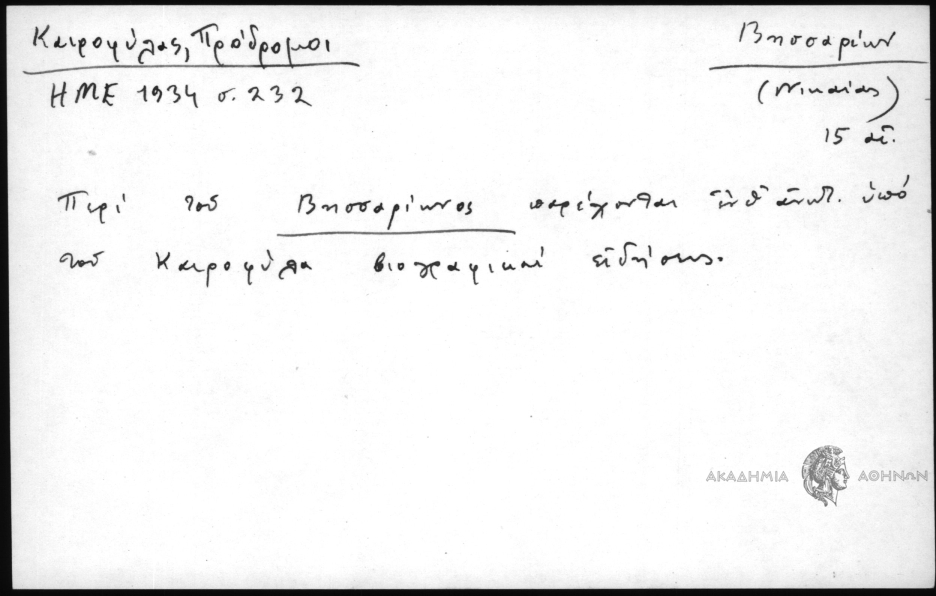 Καιροφύλας, Πρόδρομοι
ΗΜΕ 1934 σ. 232
Βησσαρίων
(Νικαίας)
15 αἰ.
Περί τοῦ Βησσαρίωνος παρέχονται ἐνθ' ἀνωτ. ὑπό
τοῦ Καιροφύλα βιογραφικαί εἰδήσεις.
ΑΚΑΔΗΜΙΑ ΑΘΗΝΩΝ